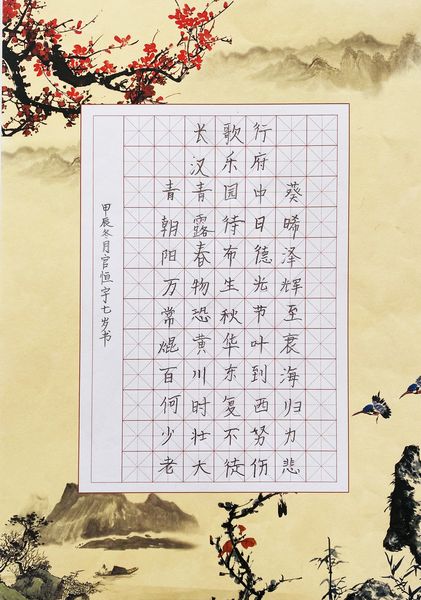 长歌行
汉乐府
青青园中葵
朝露待日晞
阳春布德泽
万物生光辉
常恐秋节至
焜黄华叶衰
百川东到海
何时复西归
少壮不努力
老大徒伤悲
甲辰冬月官恒宇七岁书